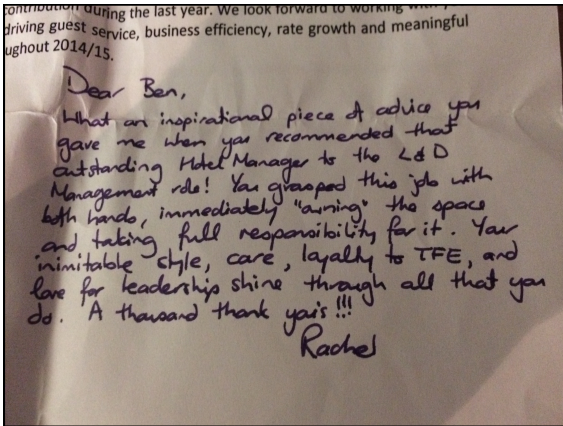 contribution during the last year. We look forward to working with y
driving guest service, business efficiency, rate growth and meaningful
ughout 2014/15.
Dear Ben,
What an inspirational piece of advice you
gave me when you recommended that
outstanding Hotel Manager to the L&D
Management role! You grasped this job with
both hands, immediately "owning" the space
and taking full responsibility for it. Your
inimitable style, care, loyalty to TFE, and
love for leadership shine through all that you
do. A thousand thank you's!!!
Rachel